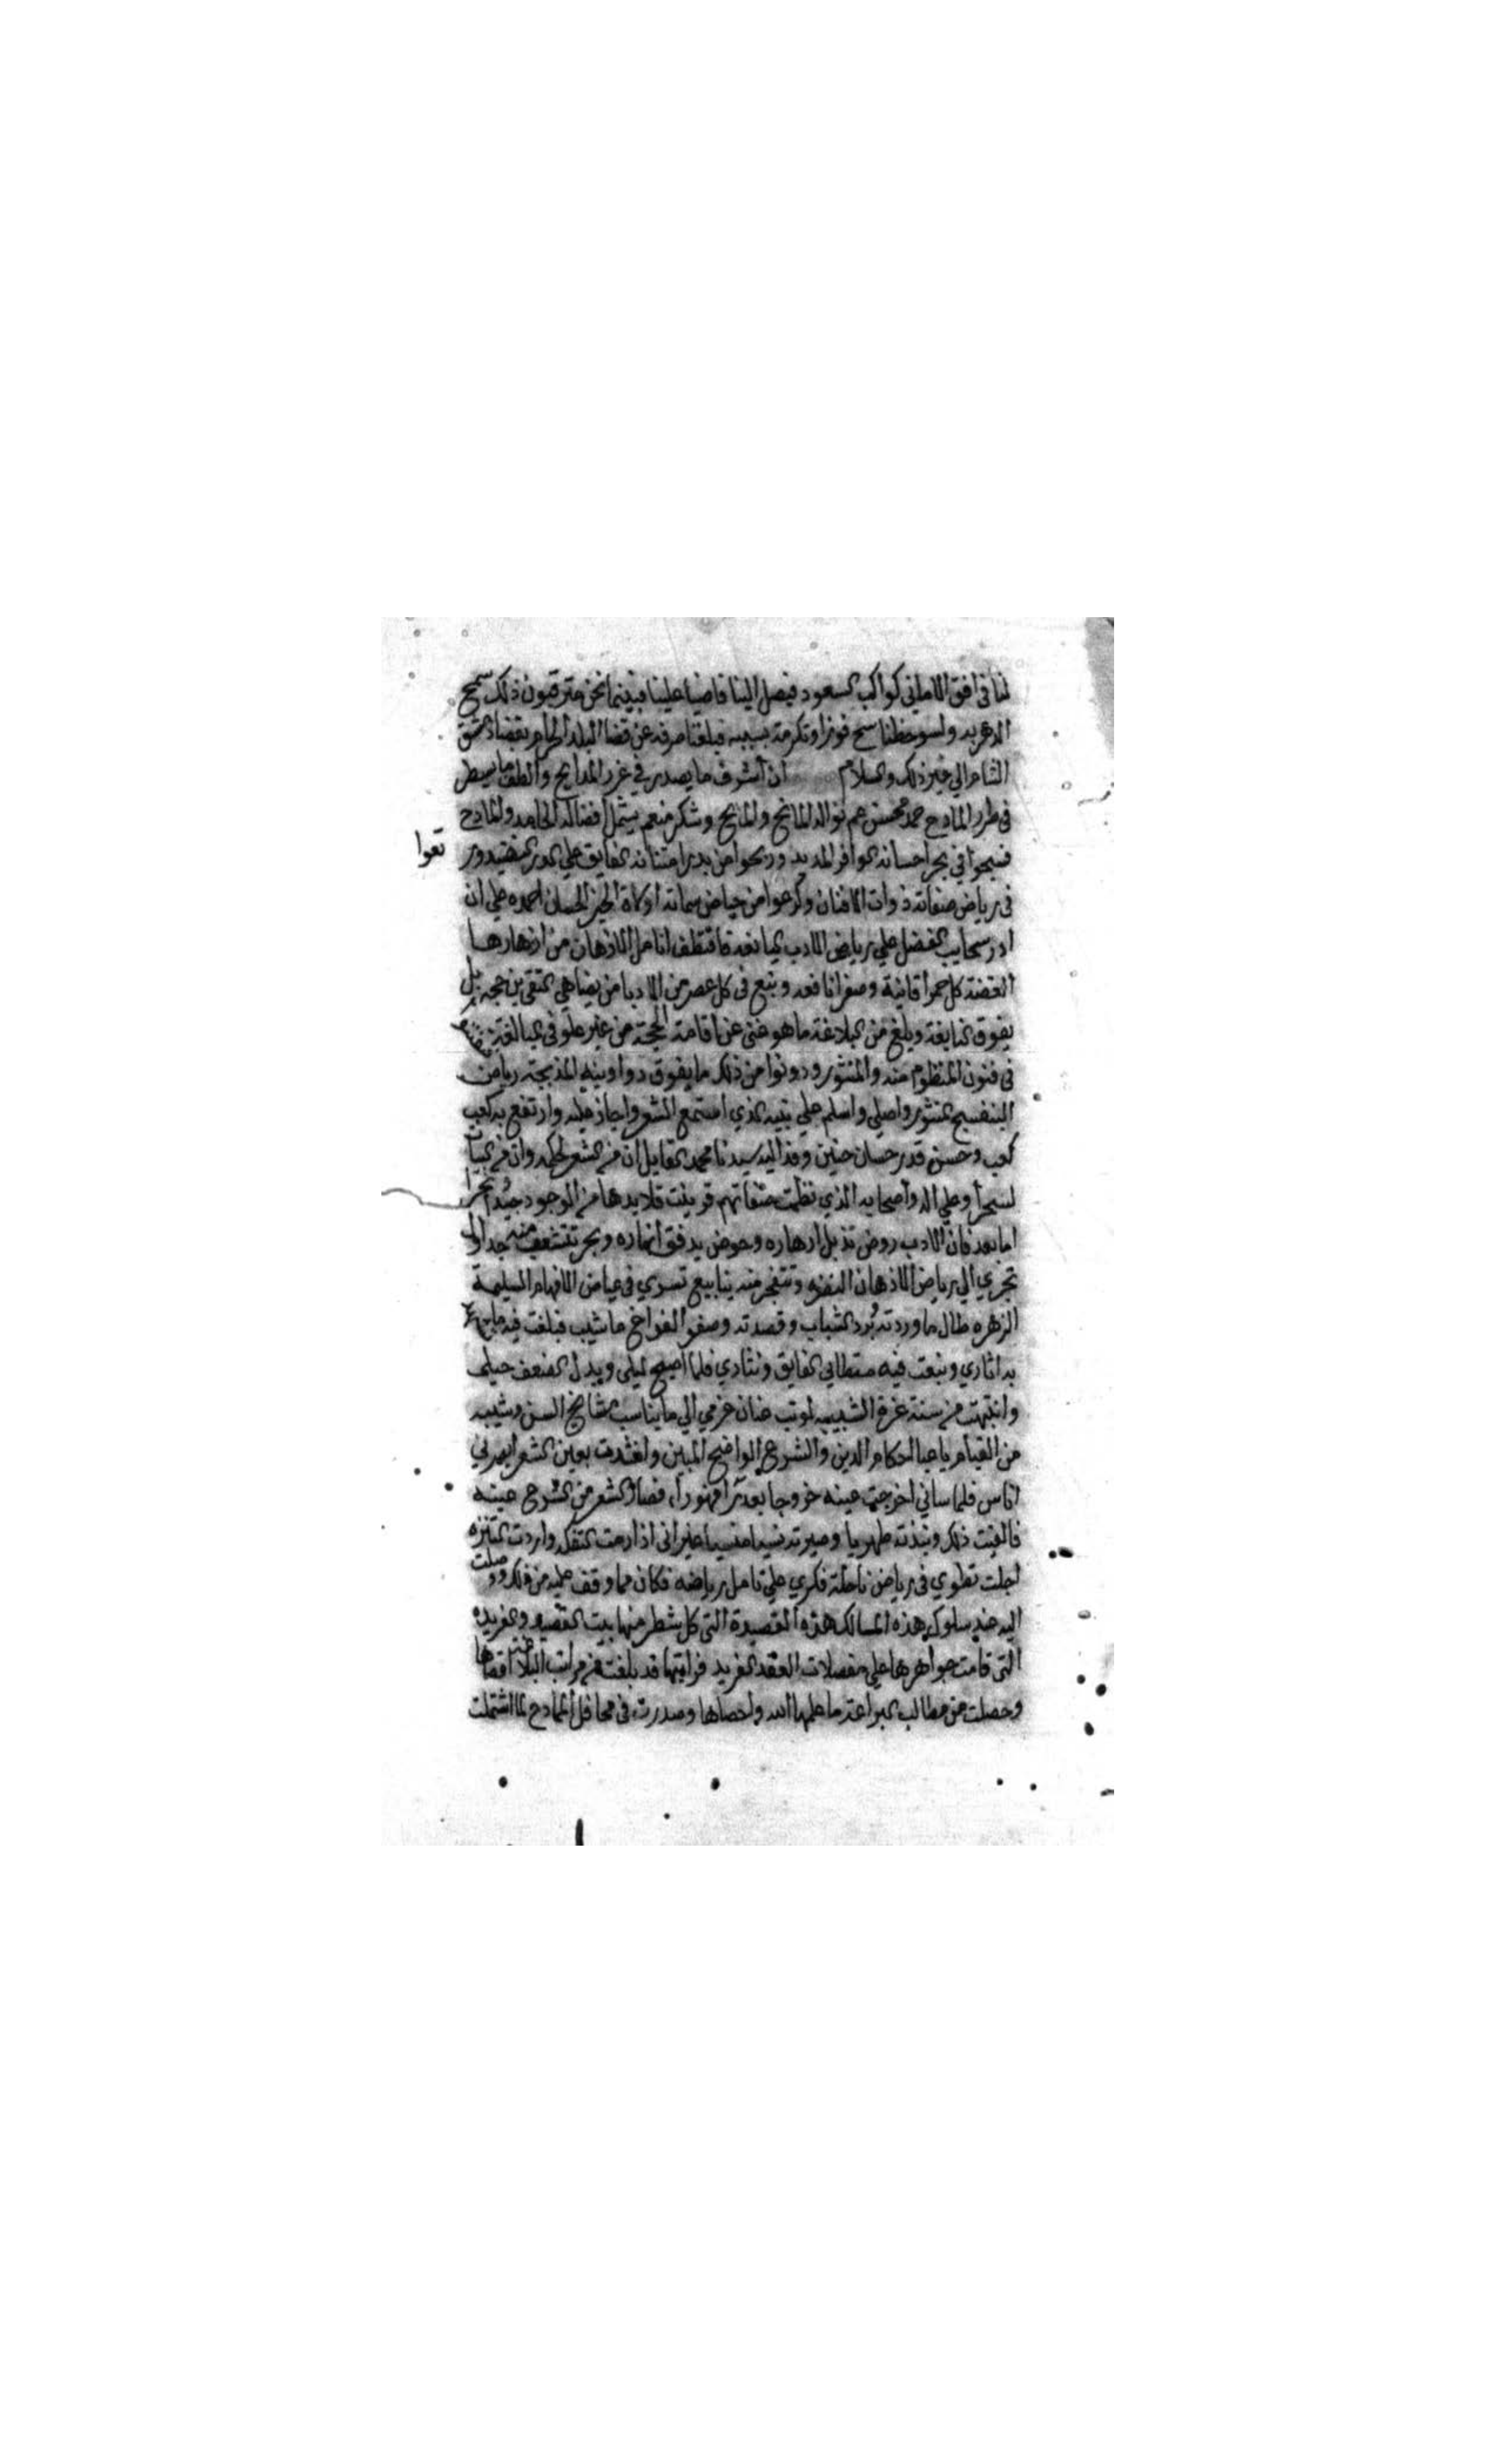 لنا في افق الاماني كواكب السعود فيصل الينا قاضيا علينا فبينما نحن مترقبون ذلك سمح
الدهر به ولسو حظنا سح فوزا وتكرمة بسببه فبلغنا صرفه عن قضا البلد الحرام بقضا دمشق
الشام الي غير ذلك والسلام ان أشرف ما يصدر في غرر المدايح وألطف ما يسطر
في طرر المادح حمد محسن عم نواله المانح والمايح وشكر منعم يشمل أفضاله الحامد والمادح
فسبحوا في بحر احسانه الوافر المديد وربحوا من بدر امتنانه الفايق علي الدر النضيد ور
تعوا
في رياض صفاته ذوات الافنان وكرعوا من حياض سماته اولاة الخير الحسان احمده علي ان
ادر سحايب الفضل علي رياض الادب اليانعة فاقتطف انامل الاذهان من ازهارها
الغضة كل حمرا قانية وصفرا نافعه ونبع في كل عصر من الادبا من يضاهي التقي بن حجه بل
يفوق النابغة ويبلغ من البلاغة ما هو غني عن اقامة الحجة من غير علو في المبالغة
في فنون المنظوم منه والمنثور ودونوا من ذلك ما يفوق دواوينه المذبجة رياض
البنفسج المنثور واصلي واسلم علي نبيه الذي استمع الشعر واجاز عليه وارتفع به كعب
كعب وحسن قدر حسان حنين وفد اليه سيدنا محمد القايل ان من الشعر لحكمه وان من البيان
لسحرا وعلي اله وأصحابه الذي نظمت صفاتهم قد ينت قلايدها من الوجود جيدا نحرا
اما بعد فان الادب روض تذبل ازهاره وحوض يدفق انهاره وبحر تتشعب منه جداول
تجري الي رياض الاذهان النضره وتتفجر منه ينابيع تسري في عياض الافهام السليمة
الزهره طال ما وردته برد الشباب وقصدته وصفو الفواخ ما شيب فبلغت فيه
به اثاري ونبعت فيه الفايق ونثاري فلما اصبح ليلي وبدل الضعف حيلي
وانتبهت من سنة غرة الشبيبه لوتب عنان عزمي الي ما يناسب مشايخ السن وشيبه
من القيام باعبا احكام الدين والشرع الواضح المبين وانشدت بعين الشعر ايمدلي
اناس فلما ساني اخرجت عينه خروجا بعد فصار الشعر من الشرع عينه
فالفيت ذلك ونبذته ظهريا وصيرته نسيا منسيا غير اني اذا رمت التفكه واردت التنزه
اجلت نظري في رياض ناحلة فكري علي تامل رياضه فكان مما وقف عليه من ذلك ووصلت
اليه عند سلوك هذه المسالك هذه القصيدة التي كل شطر منها بيت القصيد والفريده
التي قامت جواهرها علي مفصلات العقد الفريد فرايتها قد بلغت من مراتب البلاغة اقصاها
وحصلت من مطالب البراعة ما علمها الله واحصاها وصدرت في محافل المادح لما اشتملت